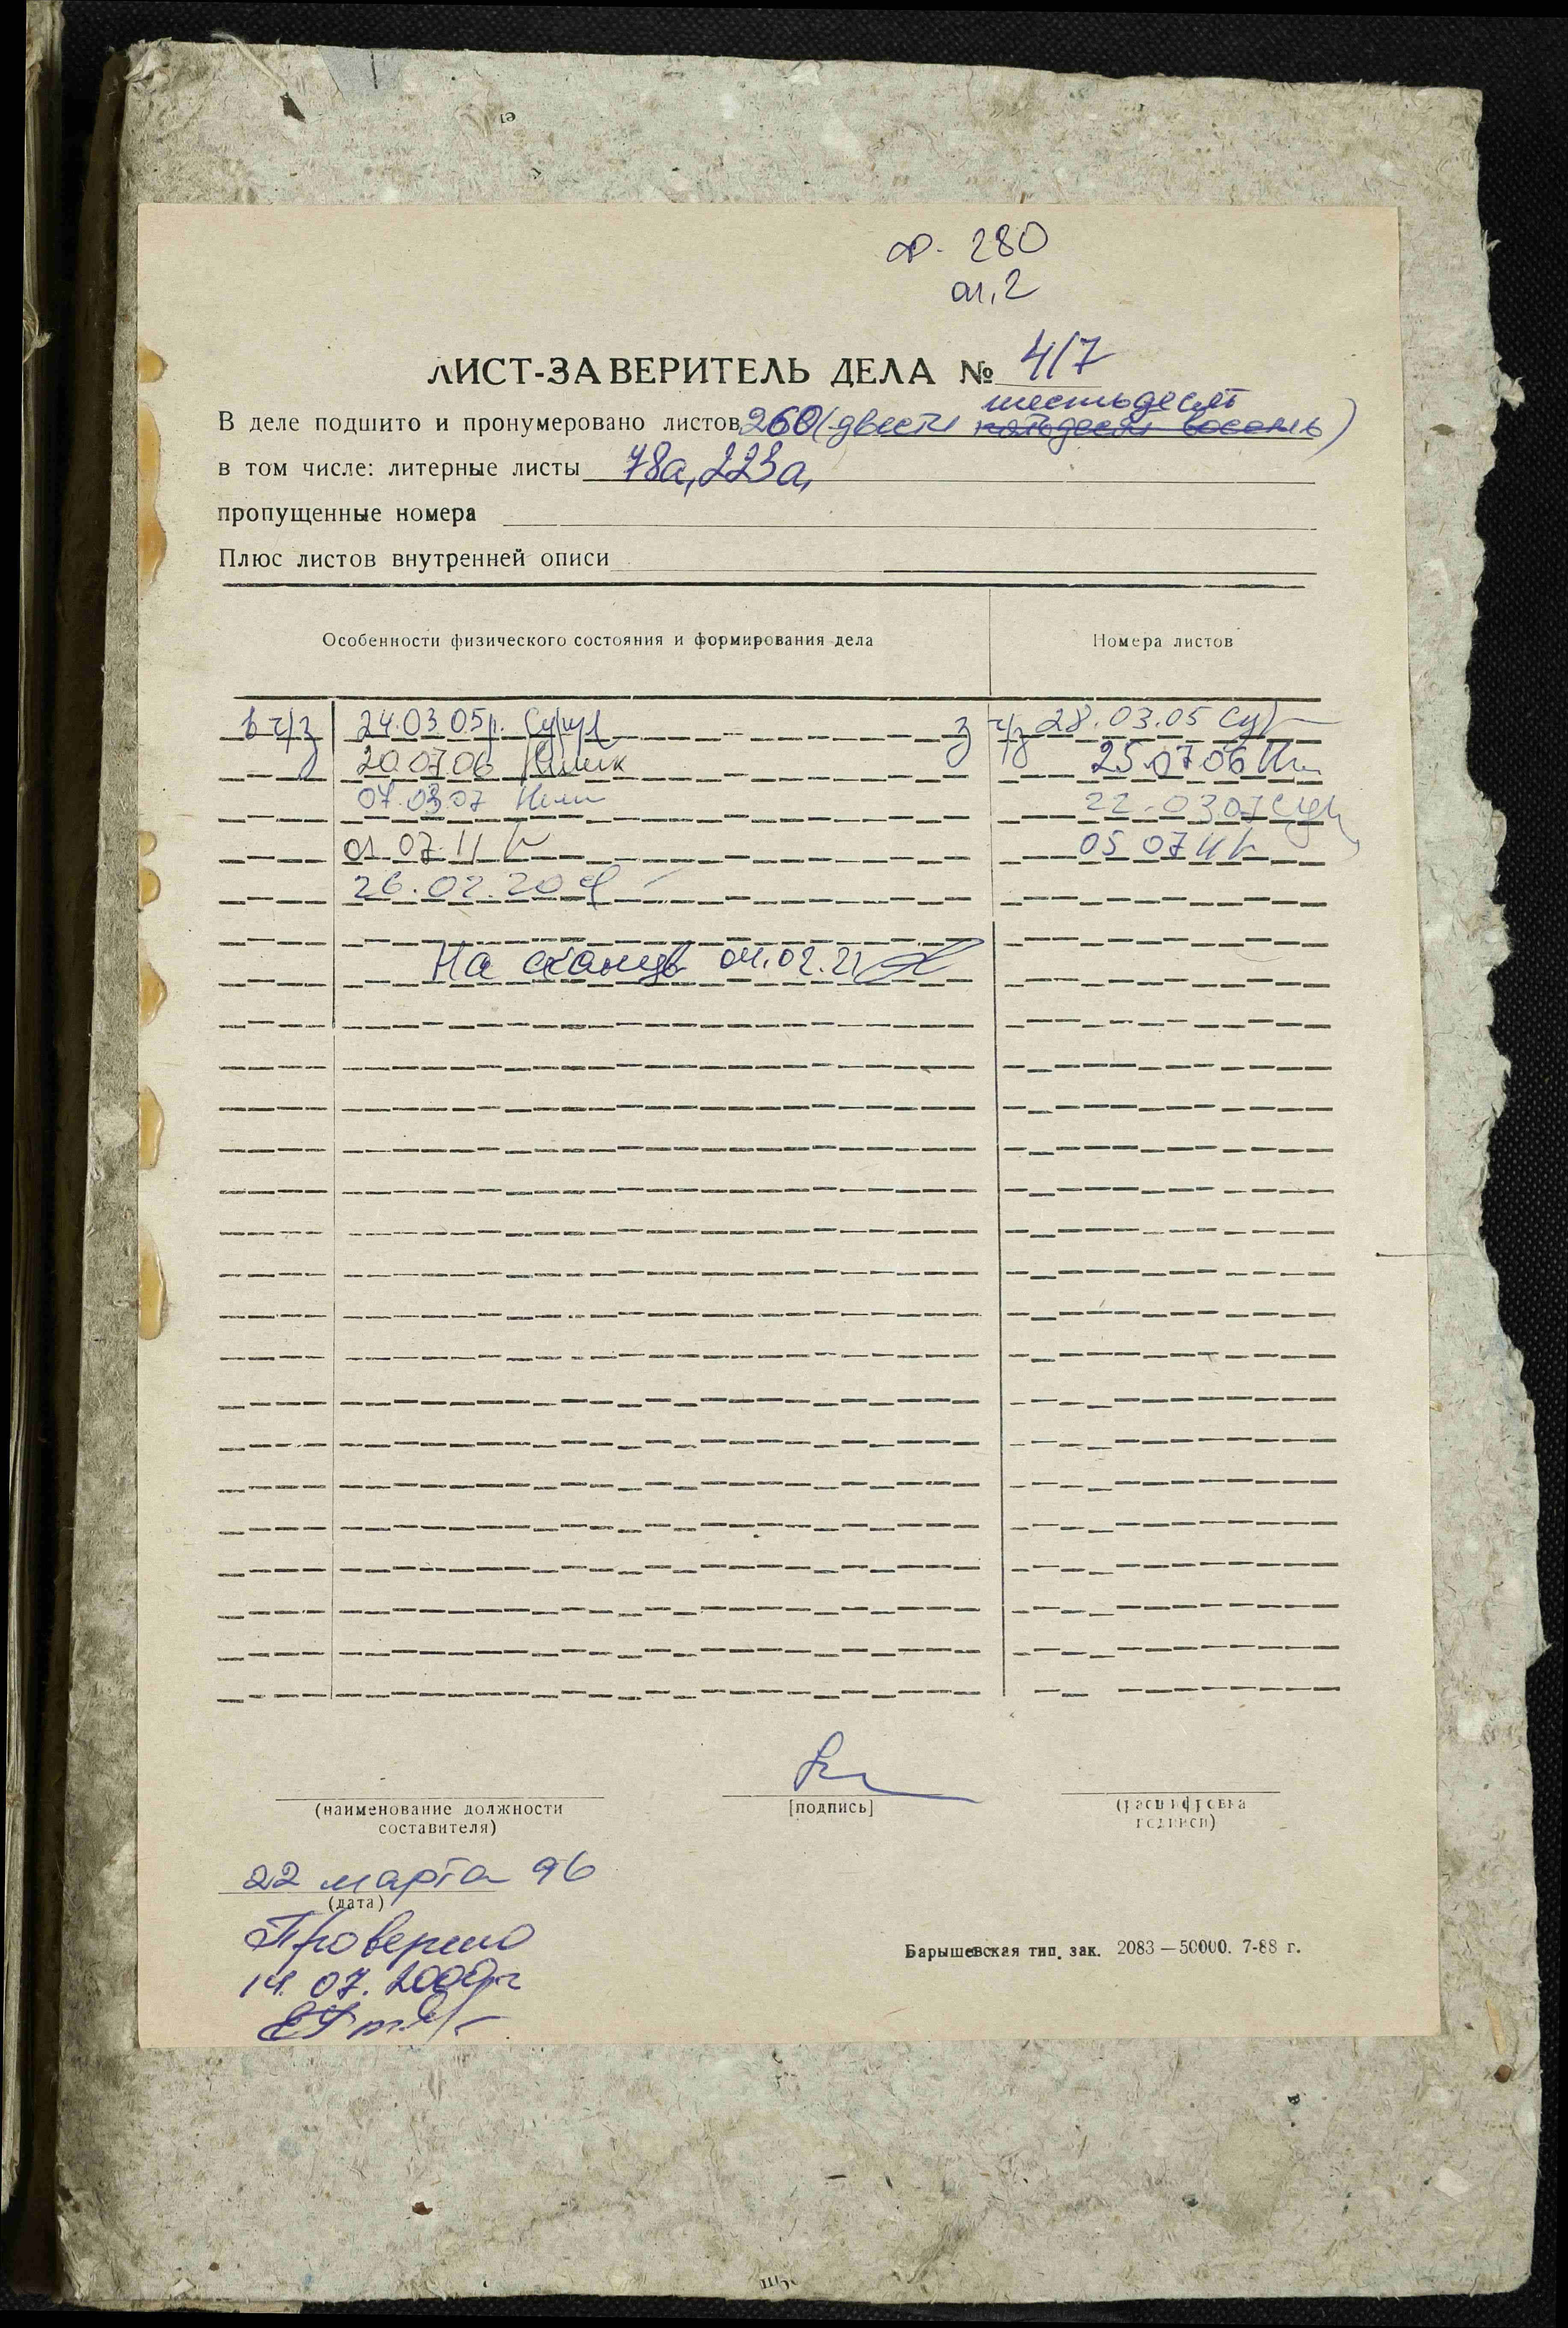 ф. 280
оп. 2
ЛИСТ-ЗАВЕРИТЕЛЬ ДЕЛА № 417
шестьдесят
В деле подшито и пронумеровано листов 260 (двести пятьдесят восемь)
в том числе: литерные листы 78а, 223а,
пропущенные номера
Плюс листов внутренней описи
Особенности физического состояния и формирования дела
Номера листов
в ч/з 24.03.05г. из ч/з 28.03.05
20.07.06 25.07.06
07.03.07 22.03.07
01.07.11 05.07.11
26.02.20
На сканир 04.02.21
(наименование должности
составителя)
[подпись]
(расшифровка
подписи)
22 марта 96
(дата)
Проверено
14.07.2000г
Барышевская тип. зак. 2083—50000. 7-88 г.